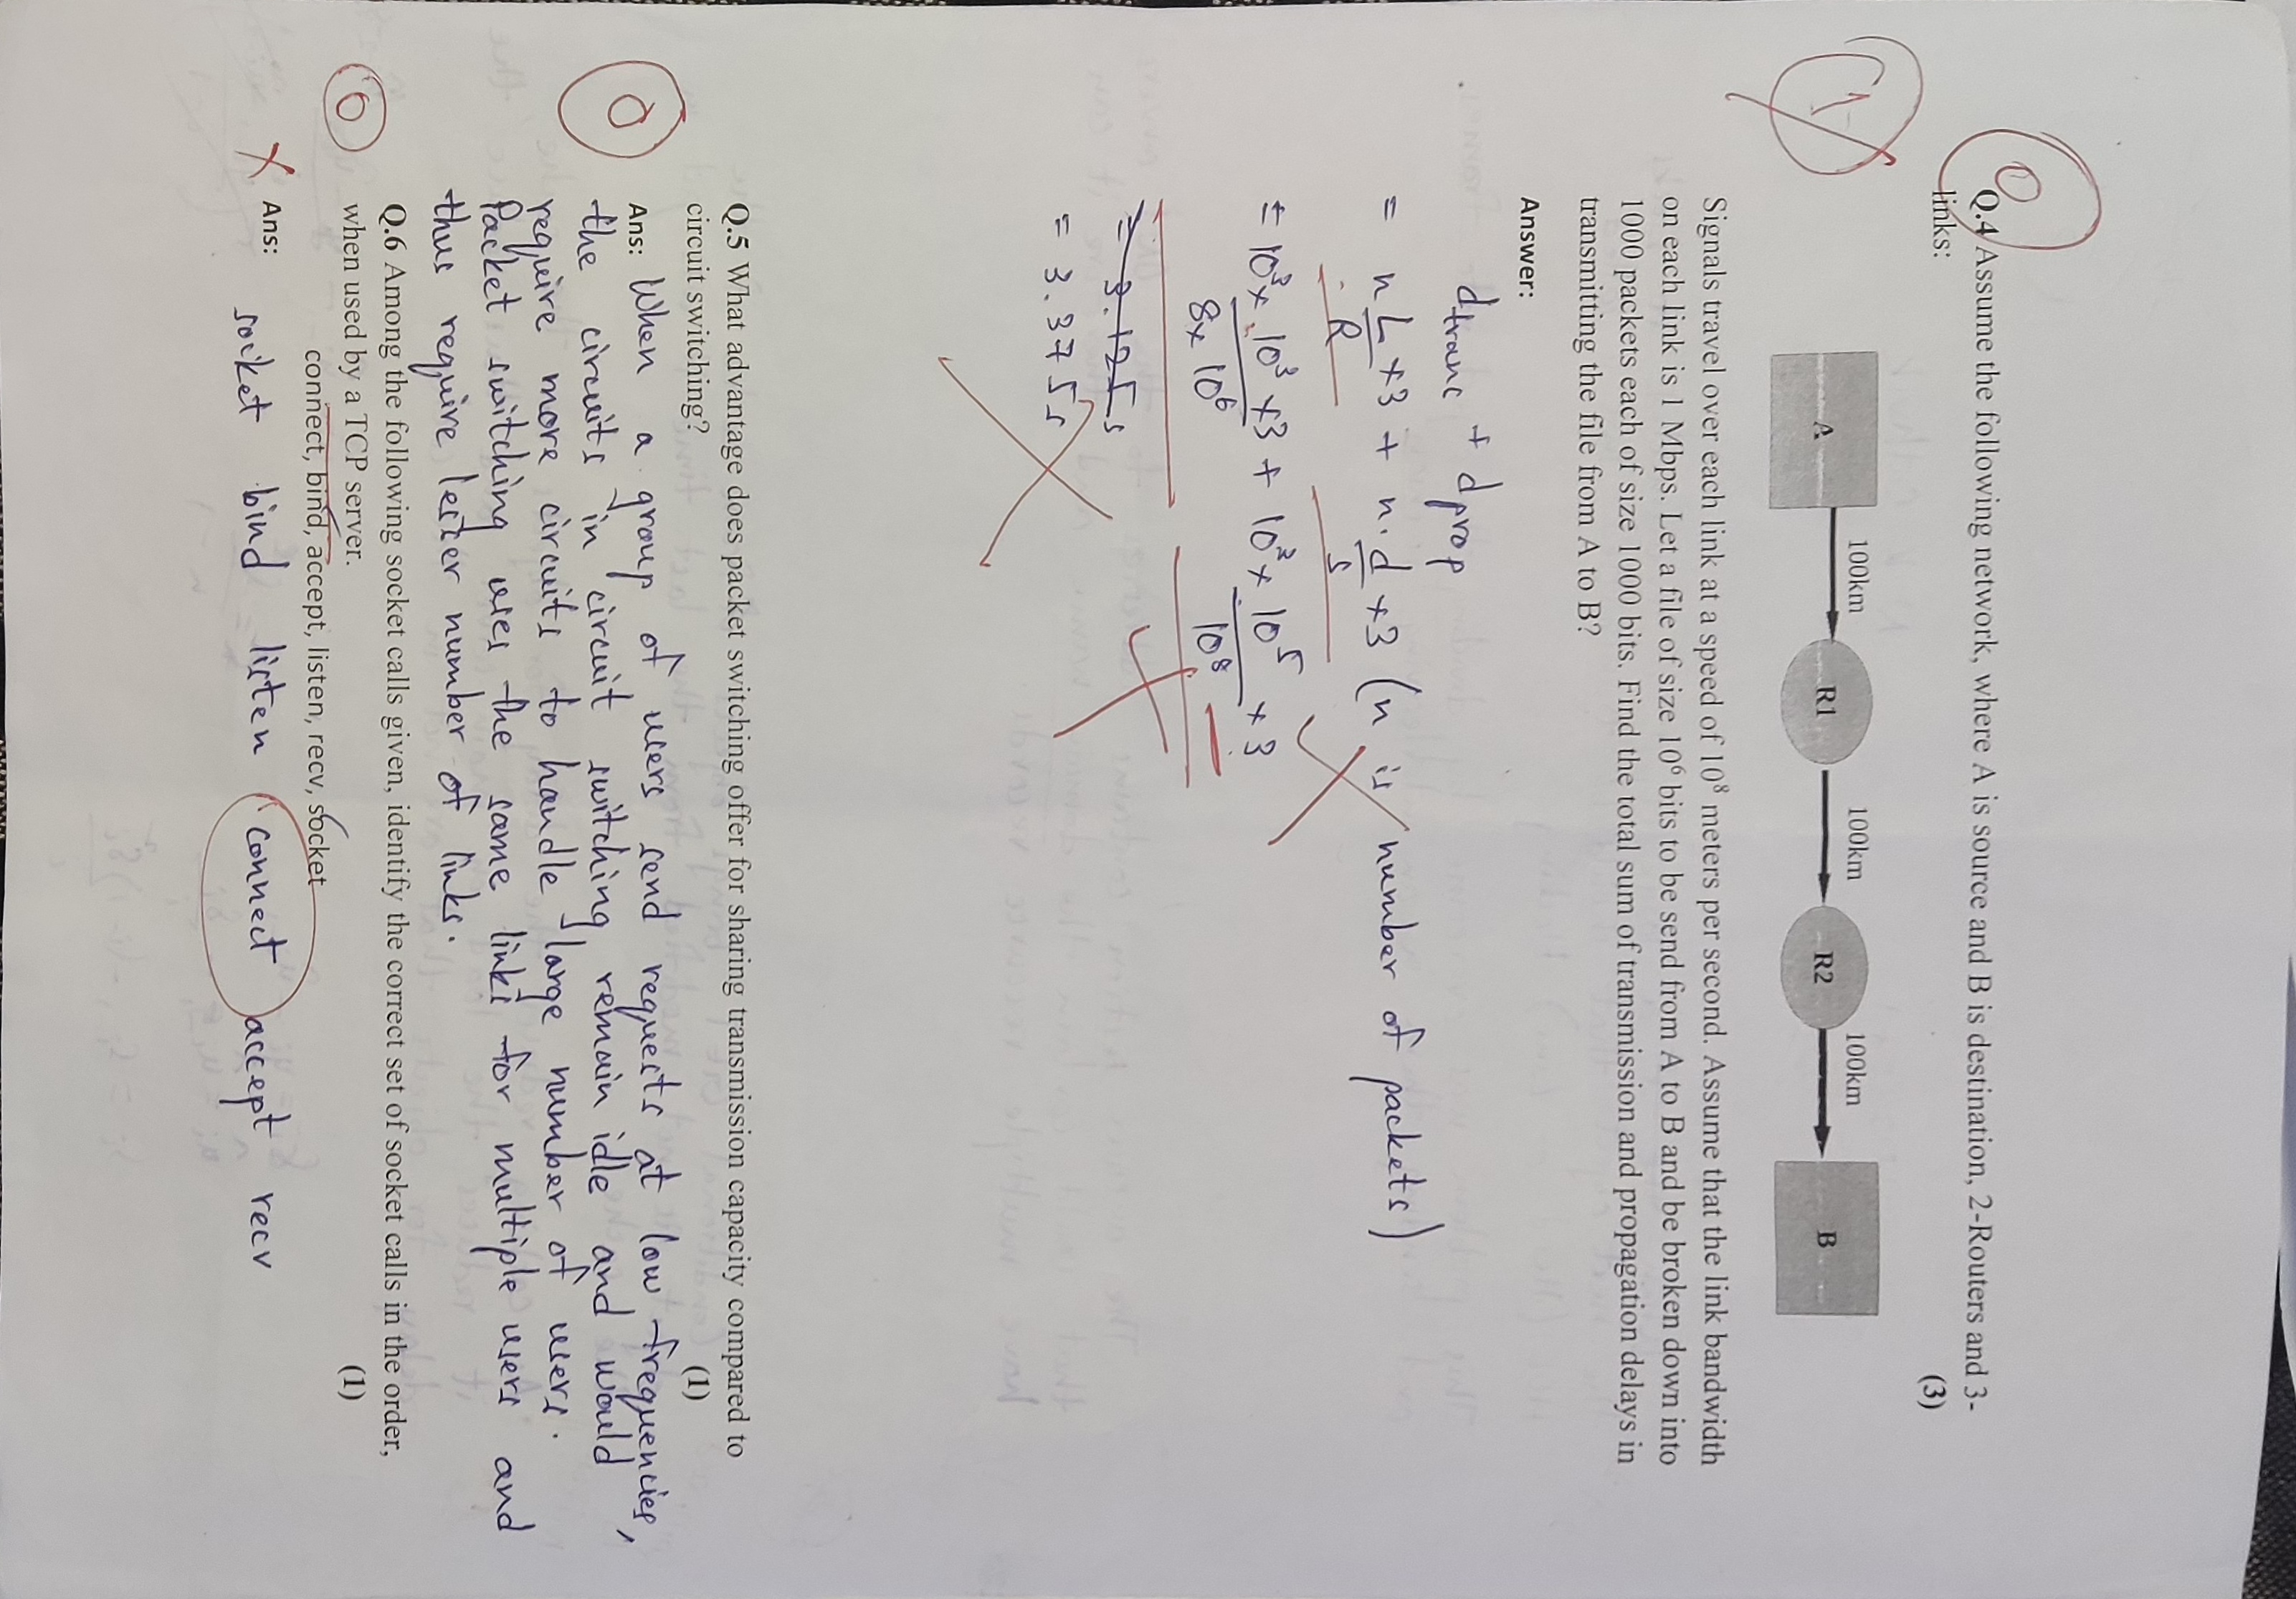 0
Q.4 Assume the following network, where A is source and B is destination, 2-Routers and 3-
links: (3)
1
A 100km R1 100km R2 100km B
Signals travel over each link at a speed of 10⁸ meters per second. Assume that the link bandwidth
on each link is 1 Mbps. Let a file of size 10⁶ bits to be send from A to B and be broken down into
1000 packets each of size 1000 bits. Find the total sum of transmission and propagation delays in
transmitting the file from A to B?
Answer:
dtrans + dprop
= n L/R ×3 + n. d/s ×3 (n is number of packets)
= 10³× 10³/8×10⁶ ×3 + 10³× 10⁵/10⁸ ×3
= 3.125s
= 3.375s
Q.5 What advantage does packet switching offer for sharing transmission capacity compared to
circuit switching? (1)
0
Ans: When a group of users send requests at low frequencies,
the circuits in circuit switching remain idle and would
require more circuits to handle large number of users.
Packet switching uses the same links for multiple users and
thus require lesser number of links.
Q.6 Among the following socket calls given, identify the correct set of socket calls in the order,
when used by a TCP server. (1)
0
connect, bind, accept, listen, recv, socket
Ans: socket bind listen connect accept recv